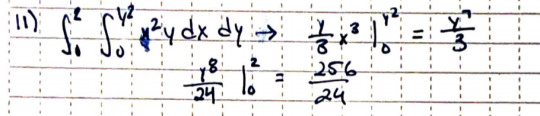 11) ∫₀² ∫₀^{y²} x²y dx dy → y/3 x³ |₀^{y²} = y⁷/3
y⁸/24 |₀² = 256/24